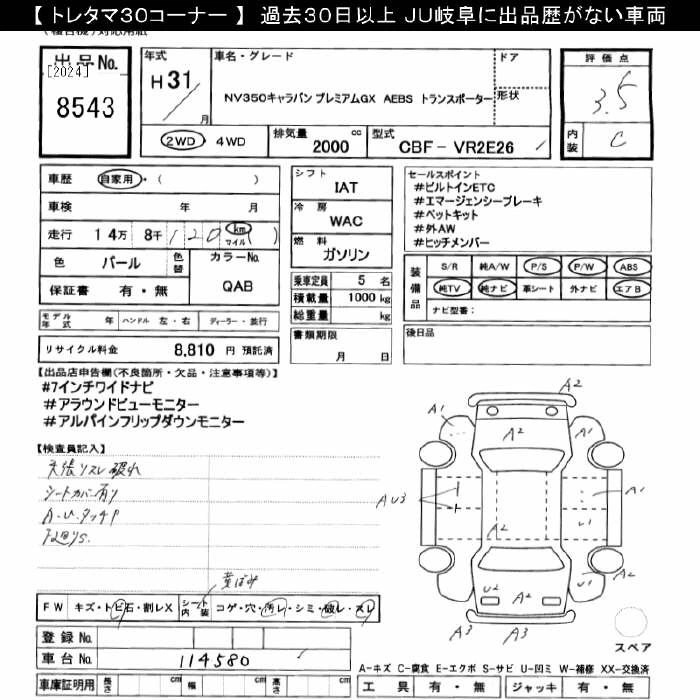 【 トレタマ30コーナー 】 過去30日以上 JU岐阜に出品歴がない車両
出品No.
[2024]
8543
年式
H 31 / 月
車名・グレード
NV350キャラバン プレミアムGX AEBS トランスポーター
ドア
形状
2WD・4WD
排気量 2000 cc
型式 CBF - VR2E26
評価点
3.5
内装 C
車歴 自家用・( )
車検 年 月
走行 14万 8千 120 km マイル ( )
色 パール 色替
カラーNo. QAB
保証書 有・無
シフト IAT
冷房 WAC
燃料 ガソリン
乗車定員 5 名
積載量 1000 kg
総重量 kg
セールスポイント
#ビルトインETC
#エマージェンシーブレーキ
#ベットキット
#外AW
#ヒッチメンバー
装備品
S/R 純A/W P/S P/W ABS
純TV 純ナビ 革シート 外ナビ エアB
ナビ型番:
モデル年式 年 ハンドル 左・右 ディーラー・並行
リサイクル料金 8,810 円 預託済
書類期限 月 日
後日品
【出品店申告欄(不良箇所・欠品・注意事項等)】
#7インチワイドナビ
#アラウンドビューモニター
#アルパインフリップダウンモニター
【検査員記入】
天張りスレ破れ
シートカバー有り
A・U・タッチP
A2
A1
A2
A1
AU3
A2
U1
U2
A2
U1
A3
A3
黄ばみ
FW キズ・トビ石・割レX
シート内装 コゲ・穴・汚レ・シミ・破レ・スレ
登録No.
車台No. 114580
スペア
A-キズ C-腐食 E-エクボ S-サビ U-凹ミ W-補修 XX-交換済
車庫証明用 長さ cm 幅 cm 高さ cm
工具 有・無 ジャッキ 有・無